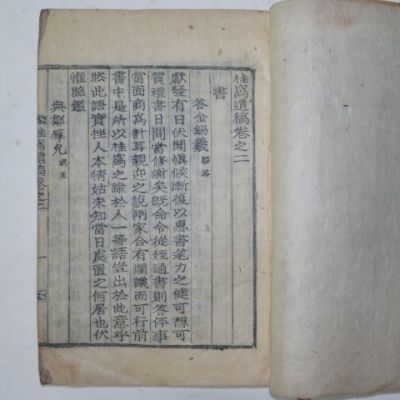 桂窩遺稿卷之二
書
答金錫羲
獻發有日伏聞愼候漸復以惠書筆力之健可想可
質禮書日間當修謝矣旣命令從姪通書則答俾事
當面商爲計耳親迎之說兩家合有爛議而可行前
書中是所以桂窩之喩於人一等語豈出於此意乎
然此語實拙人本情姑未知當日處置之何居也伏
惟照鑑
與鄒厚允
桂窩遺稿卷之二
一